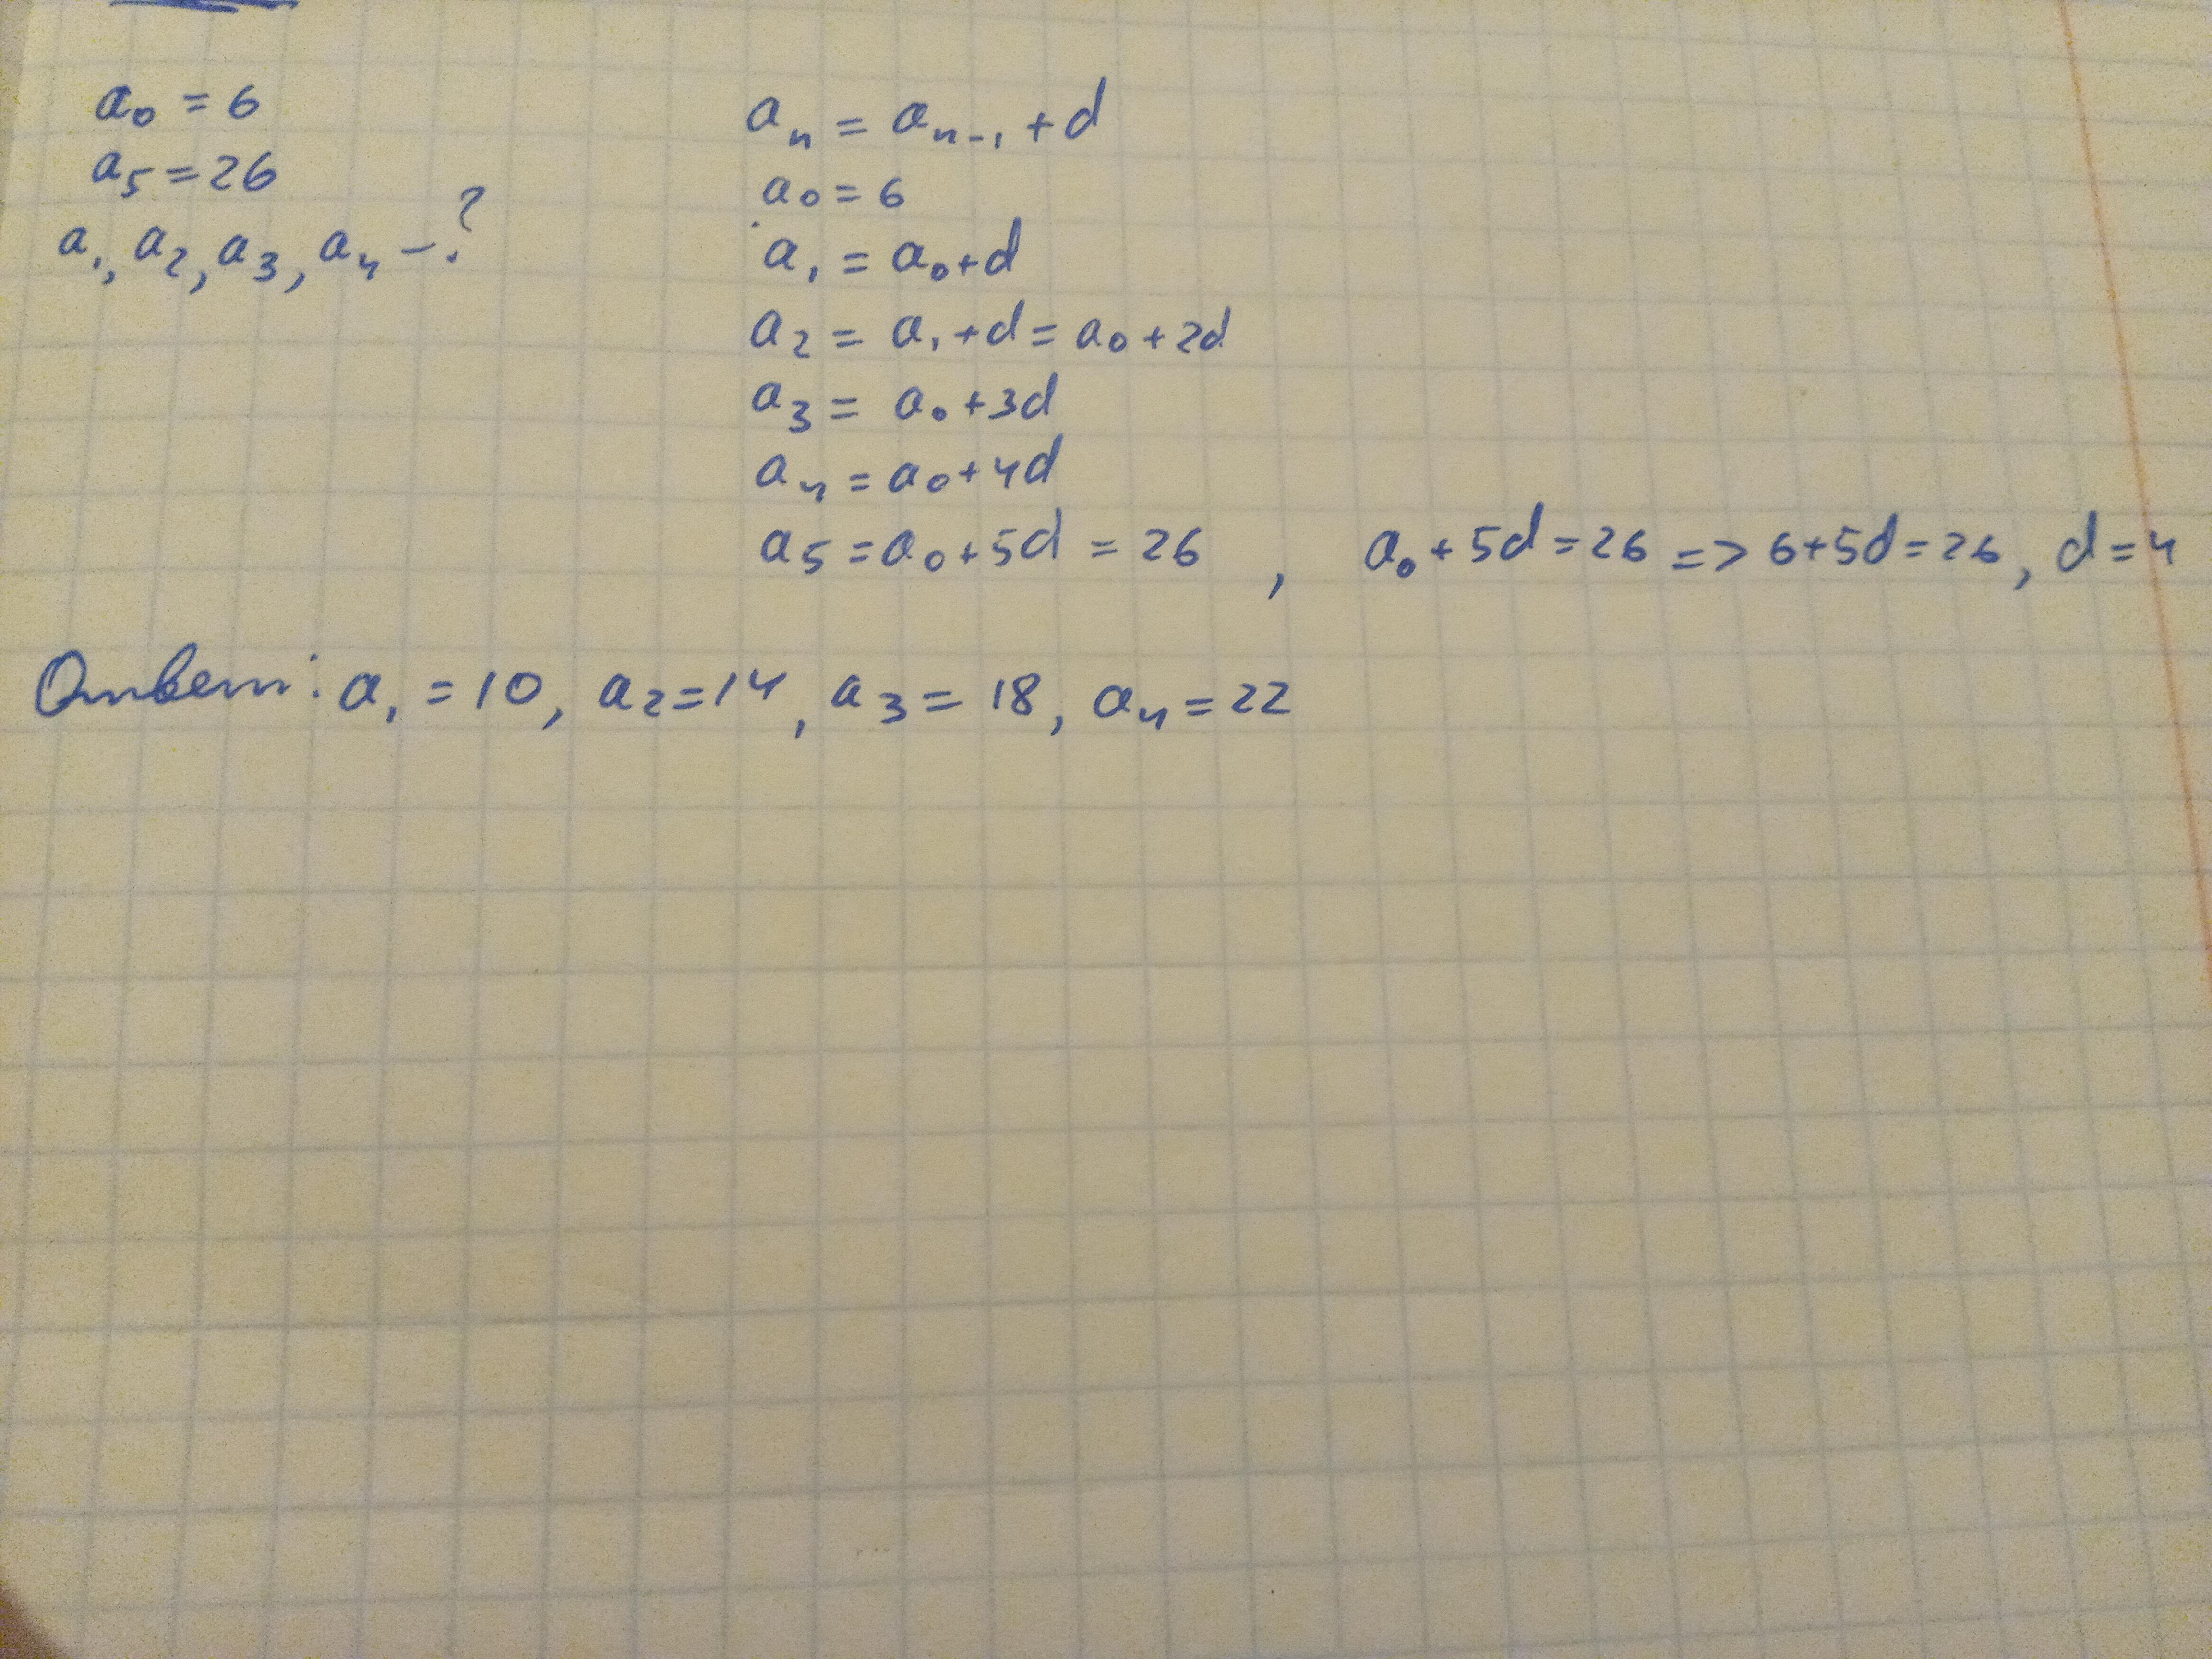 a₀ = 6
a₅ = 26
a₁, a₂, a₃, a₄ – ?
aₙ = aₙ₋₁ + d
a₀ = 6
a₁ = a₀ + d
a₂ = a₁ + d = a₀ + 2d
a₃ = a₀ + 3d
a₄ = a₀ + 4d
a₅ = a₀ + 5d = 26 , a₀ + 5d = 26 => 6 + 5d = 26, d = 4
Ответ: a₁ = 10, a₂ = 14, a₃ = 18, a₄ = 22